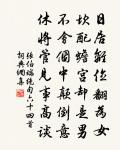 日居離位翻為女
坎配蟾宮却是男
不會個中顛倒意
休將管見事高談
張伯端絕句六十四首
詞典網集